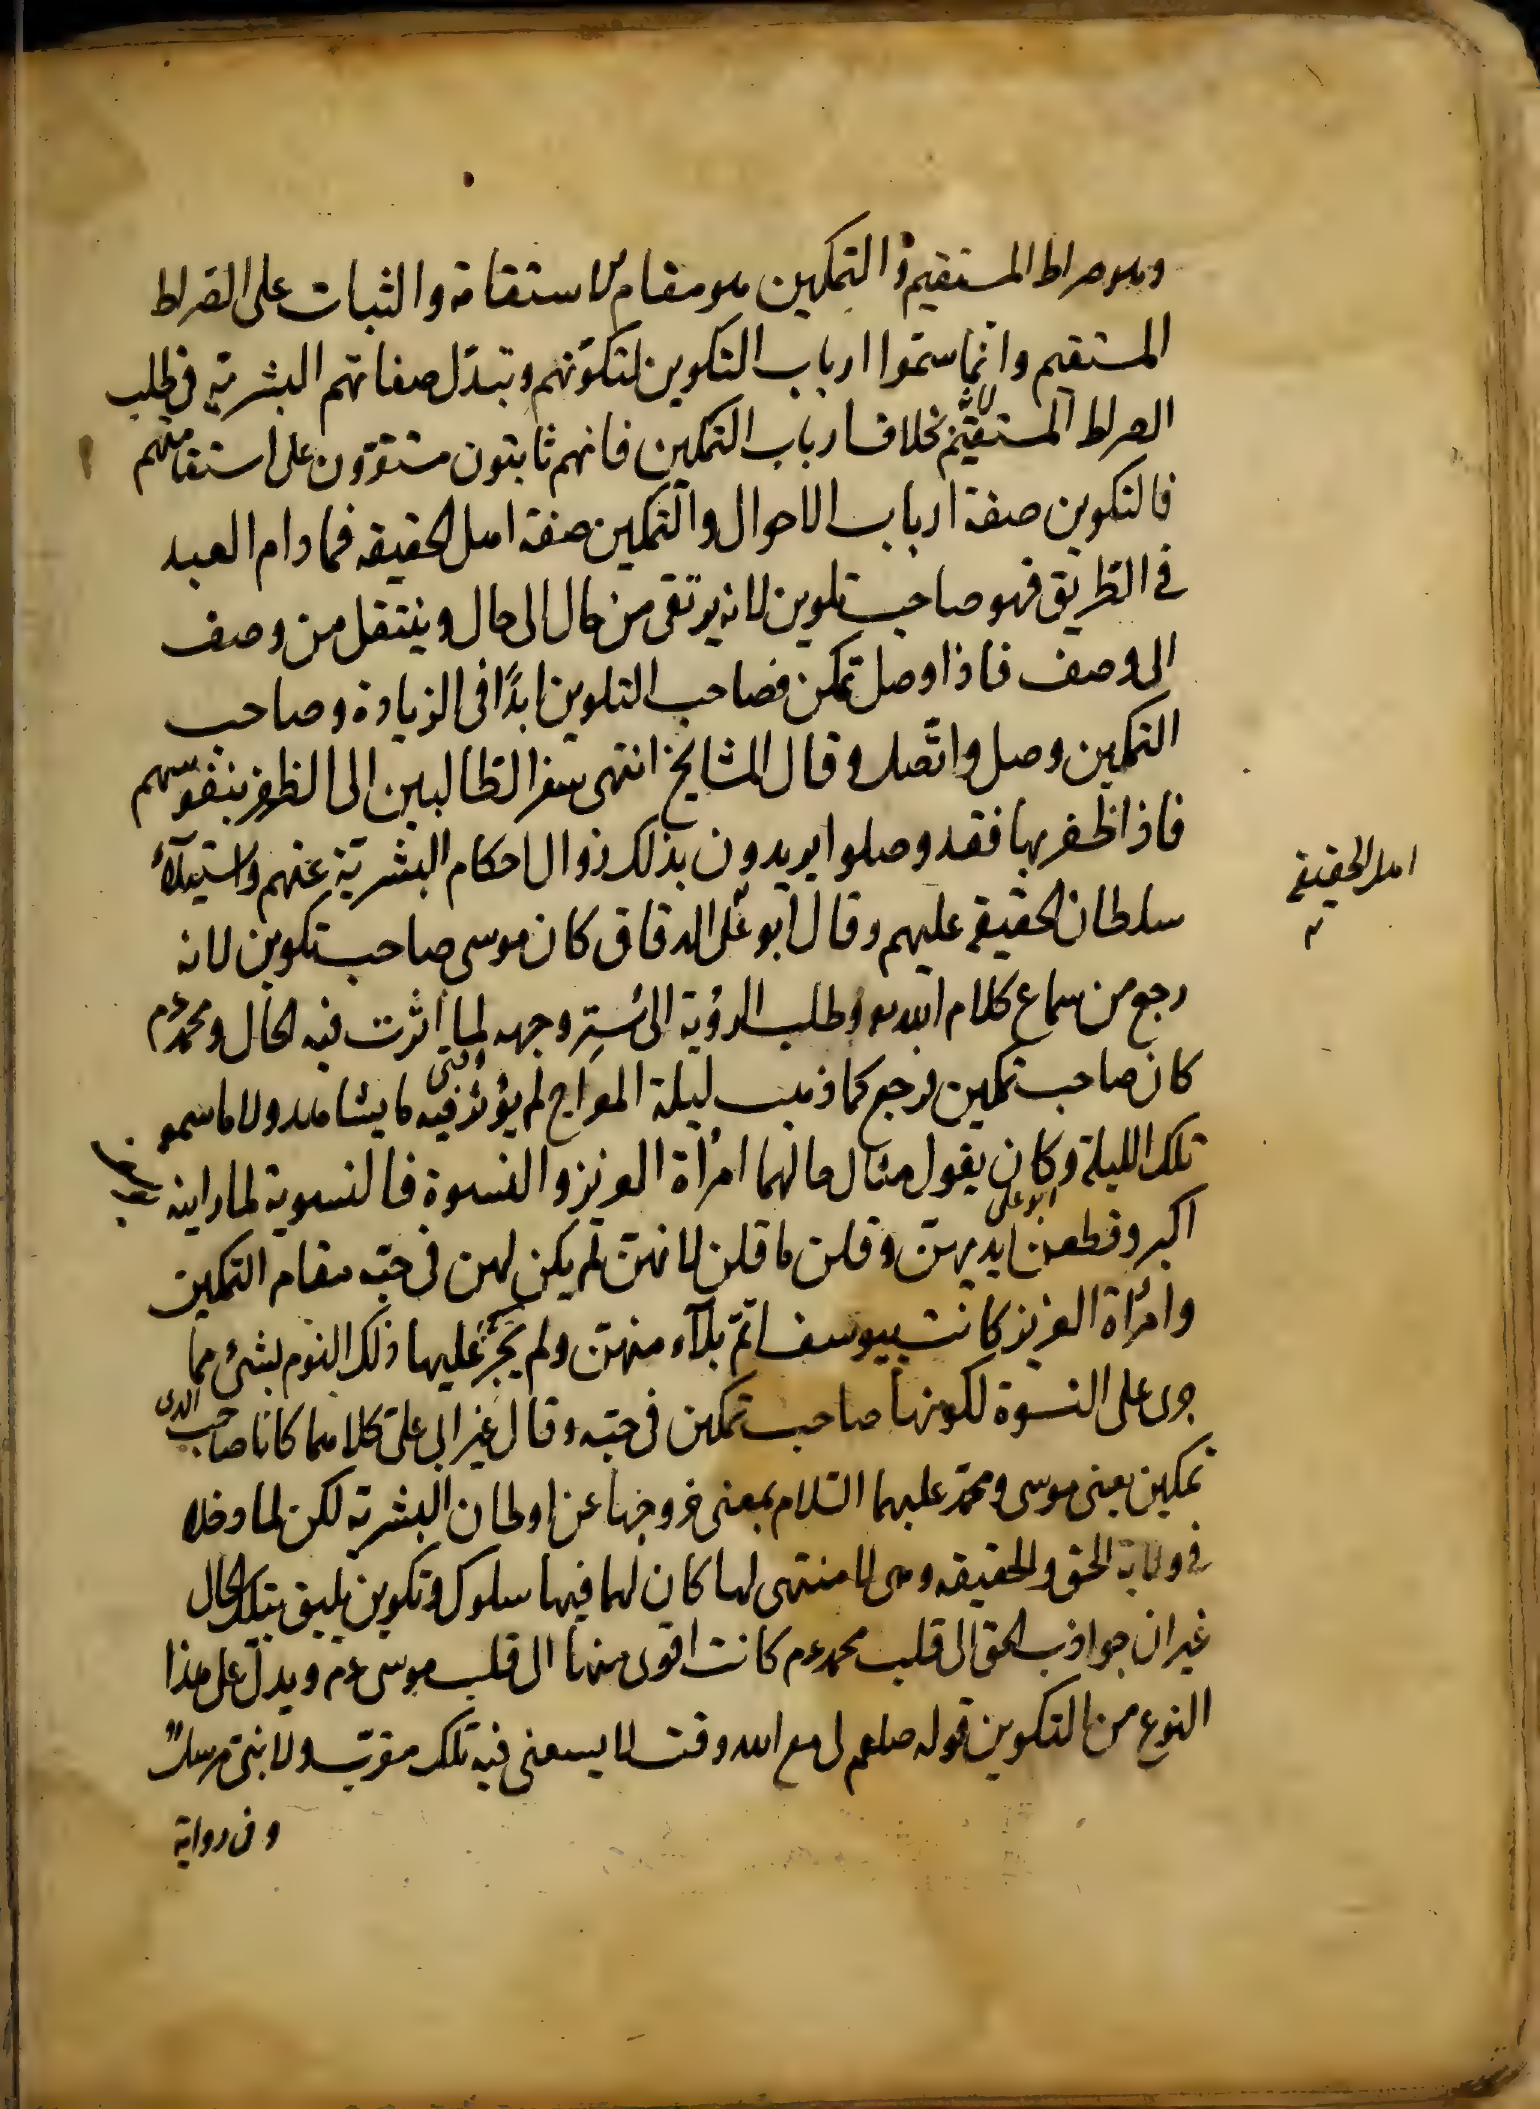 وهو صراط المستقيم و التمكين هو مقام الاستقامة والثبات على الصراط
المستقيم وانما سموا ارباب التكوين لتكونهم وتبدّل صفاتهم البشرية في طلب
الصراط المستقيم بخلاف ارباب التمكين فانهم ثابتون مستقرّون على استقامتهم
فالتكوين صفة ارباب الاحوال والتمكين صفة اهل الحقيقه فمادام العبد
في الطريق فهو صاحب تلوين لانه يرتقى من حال الى حال وينتقل من وصف
الى وصف فاذا وصل تمكن فصاحب التلوين ابدًا في الزيادة وصاحب
التمكين وصل واتّصل وقال المشايخ انتهى سفر الطالبين الى الظفر بنفوسهم
فاذا ظفر بها فقد وصلوا يريدون بذلك زوال احكام البشريّة عنهم واستيلاء
سلطان الحقيقة عليهم وقال ابو علىّ الدقاق كان موسى صاحب تكوين لانه
رجع من سماع كلام الله وطلب الرؤية الى ستر وجهه لما أثرت فيه الحال ومحمد عم
كان صاحب تمكين فرجع كما ذهب ليلة المعراج لم يؤثر فيه ما يشاهده ولا ما سمعه
تلك الليلة وكان يقول مثال حالهما امرأة العزيز والنسوة فالنسوية لما راينه
ابو على
اكبر وقطعن ايديهنّ وقلن ما قلن لانهنّ لم يكن لهن في حبّه مقام التمكين
وامرأة العزيز كانت بيوسف اتمّ بلآء منهنّ ولم يجر عليها ذلك اليوم بشئ مما
جرى على النسوة لكونها صاحب تمكين في حبّه وقال غير ابى علىّ كلاهما كانا صاحب
تمكين يعنى موسى ومحمّد عليهما السّلام بمعنى خروجها عن اوطان البشرية لكن لما دخلا
في ولاية الحق والحقيقه وهى لا منتهى لها كان لهما فيها سلوك وتكوين يليق بتلك الحال
غير ان جواذب الحق الى قلب محمد عم كانت اقوى منها الى قلب موسى عم ويدلّ على هذا
النوع من التكوين قوله صلعم لى مع الله وقت لا يسعنى فيه تلك مقرّب ولا نبىّ مرسلٌ
وفى رواية
اهل الحقيقة